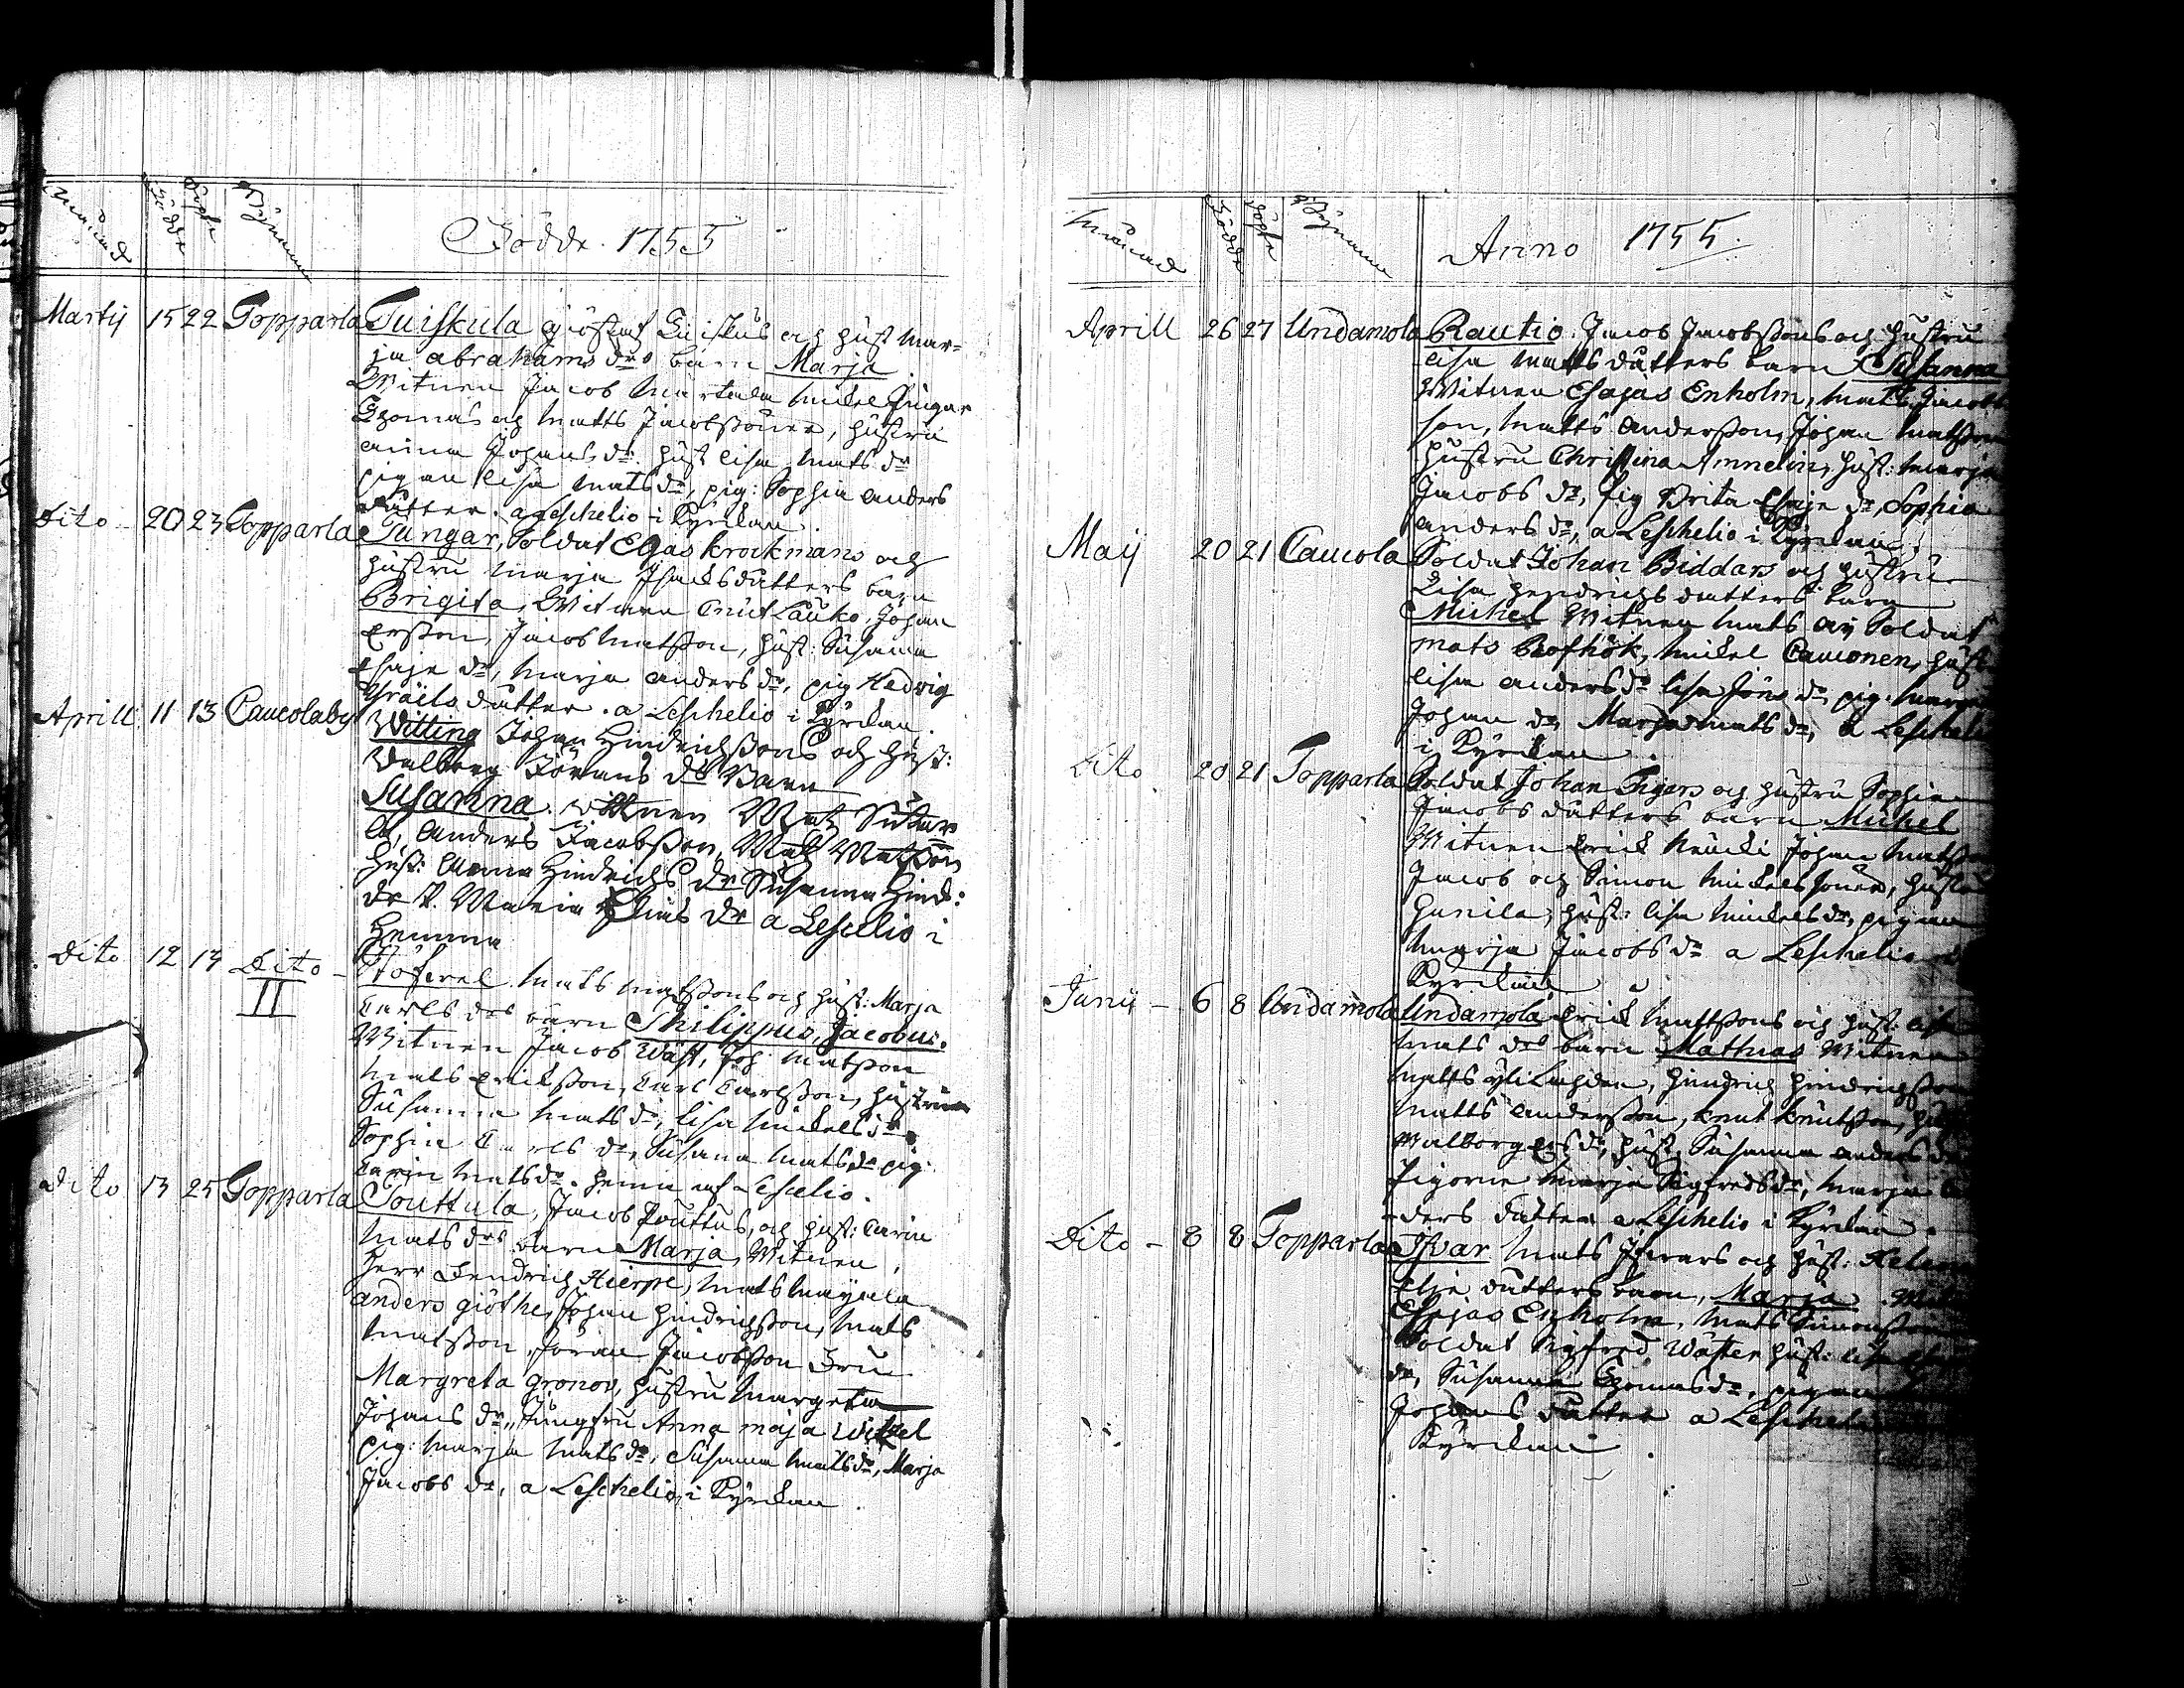 Månad Födde Döpte Bynamn Födde 1755
Martij 15 22 Topparla Tuiskula Giöstaf Tuiskus och hust Mar-
ja abrahams drs barn Marja
Witnen Jacob Martula Mickel Finger
Thomas och Matts Jacobssöner, hustru
anna Johans dr hust Lisa Mats dr
pigan Lisa Mats dr, pig: Sophia anders
dutter. a Leschelio i Kyrckan.
Dito 20 23 Topparla Tungar, Soldat Esas krockmans och
hustru Marja Isacksdutters barn
Brigita, Witnen Cnut Lauko, Johan
Ersson, Jacob Matsson, hust: Susanna
Esaje dr, Marja anders dr, pig Hedvig
Israels dutter. a Leschelio i Kyrckan.
Aprill 11 13 Caucolaby Witting Johan Hindrichssons och hust:
Walborg Jörans dr Barn
Susanna. Witnen Matz
anders Jacobsson, Matz Matsson
hust: Anna Hindrichs dr Susanna Hind:
dr P. Maria Elias dr a Leschelio i
Hemma
Dito 12 14 Dito
II
Stöferel Mats Matssons och hust: Marja
Carls drs barn Philippus, Jacobus.
Witnen Jacob Wäst, Joh Matsson
Mats Ericksson, Carl Carlsson, hustru
Susanna Mats dr, Lisa Mickels dr
Sophia Carls dr, Susana Mats dr pig:
Carin Mats dr. hema af Leschelio.
Dito 13 25 Topparla Touttula, Jacob Touttus, och hust: Carin
Mats drs barn Marja, Witnen,
Herr Hendrich Hierpe, Mats Mayala
anders giöthe, Johan Hindrichsson, Mats
Matsson, Jöran Jacobsson Fru
Margreta Gronov, hustru Margeta
Johans dr, Jungfru Anna maja Witzel
pig: Marja Mats dr, Susanna Mats dr, Marja
Jacobs dr, a Leschelio, i Kyrckan.
Månad Födde Döpte Bynamn Anno 1755.
Aprill 26 27 Undamola Rautio Jacob Jacobssons och hustru
Lisa Matts dutters barn Susanna
Witnen Esajas Enholm, Matts Jacobs
son, Matts Andersson, Johan Matsson
hustru Christina Amnelin, hust: Marja
Jacobs dr, pig Brita Esaje dr, Sophia
anders dr, a Leschelio i Kyrckan.
Maij 20 21 Caucola Soldat Johan Biddars och hustru
Lisa Hendrichs dutters barn
Mickel Witnen Mats Soldat
mats Mickel Cauconen, hust
Lisa anders dr Lisa Jöns dr pig:
Johan dr, Marja mats dr, a Leschelio
i Kyrckan.
Dito 20 21 Topparla Soldat Johan Tigers och hustru Sophia
Jacobs dutters barn Mickel
Witnen Erick Johan Matsson
Jacob och Simon Mickelssöner, hustru
Gunila, hust: Lisa Mickels dr, pigan
Marja Jacobs dr a Leschelio
Kyrckan
Junij 6 8 Undamola Undamola Erick Mattssons och hust: Lisa
Mats drs barn Mathias Witnen
Matts Hindrich Hindrichsson
Matts andersson, knut knutsson,
Walborg Ers dr, hust: Susanna anders dr
Pigorne Marja Sigfreds dr, Marja an
ders dutter a Leschelio i Kyrckan.
Dito 8 8 Topparla Ifvar Mats Ifwars och hust: Helena
Elje dutters barn, Marja.
Esajas Enholm, Mats Simonsson
Soldat Sigfred Wäster hust: Lisa
dr, Susanna Thomas dr, pigan
Johans dutter a Leschelio
Kyrckan.